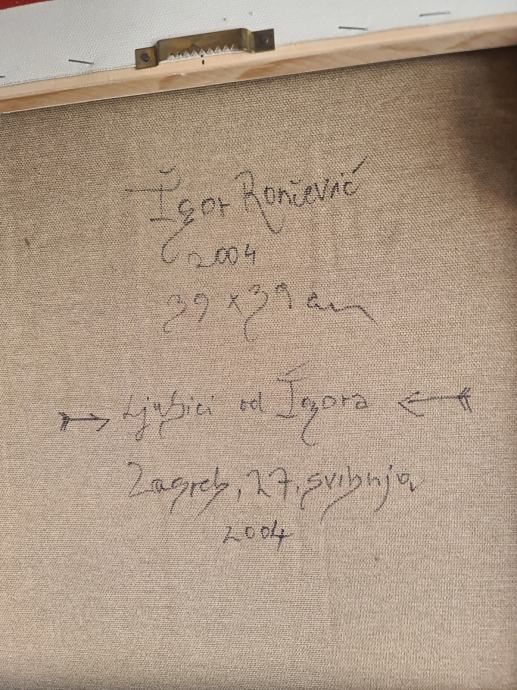 Igor Rončević
2004
39 x 39 cm
Ljubici od Igora
Zagreb, 27. svibnja
2004